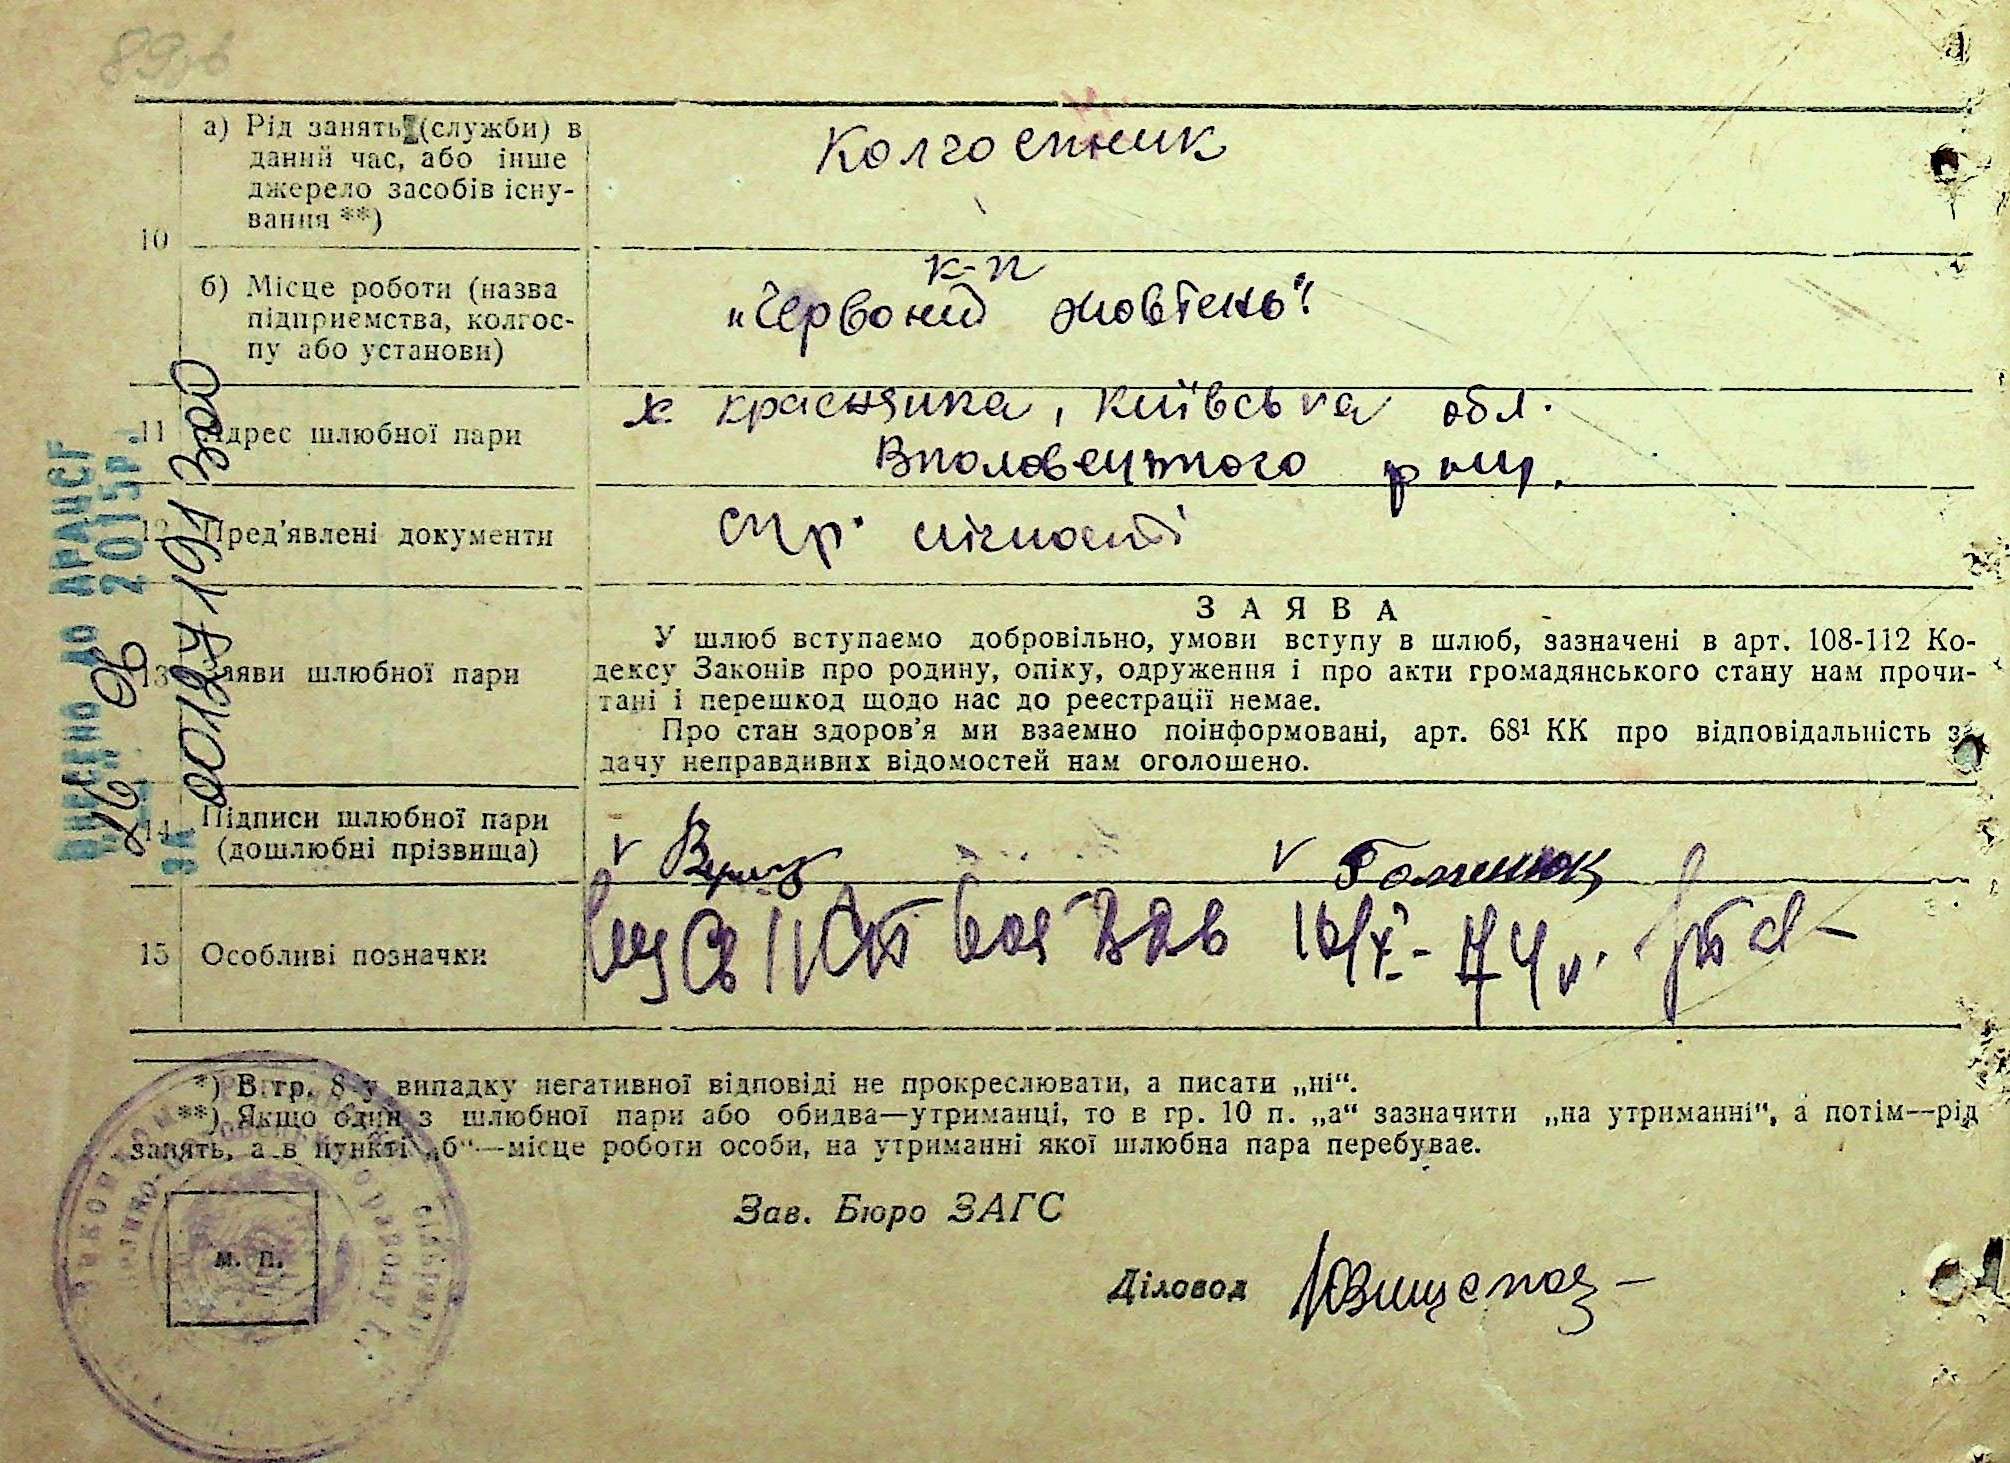 а) Рід занять (служби) в
даний час, або інше
джерело засобів існу-
вання **)
Колгоспник
10
б) Місце роботи (назва
підприємства, колгос-
пу або установи)
к-п
„Червоний жовтень“
11 Адрес шлюбної пари
х Краснянка, Київська обл.
12 Пред'явлені документи
13 Заяви шлюбної пари
ЗАЯВА
У шлюб вступаємо добровільно, умови вступу в шлюб, зазначені в арт. 108-112 Ко-
дексу Законів про родину, опіку, одруження і про акти громадянського стану нам прочи-
тані і перешкод щодо нас до реєстрації немає.
Про стан здоров'я ми взаємно поінформовані, арт. 68¹ КК про відповідальність за
дачу неправдивих відомостей нам оголошено.
14 Підписи шлюбної пари
(дошлюбні прізвища)
V V Гоменюк
15 Особливі позначки
*) В гр. 8-у випадку негативної відповіді не прокреслювати, а писати „ні“.
**) Якщо один з шлюбної пари або обидва—утриманці, то в гр. 10 п. „а“ зазначити „на утриманні“, а потім—рід
занять, а в пункті „б“—місце роботи особи, на утриманні якої шлюбна пара перебуває.
Зав. Бюро ЗАГС
Діловод
м. п.
ВНЕСЕНО ДО ДРАЦСГ
"26" 06 2015р.
ЗА 00127419 1300